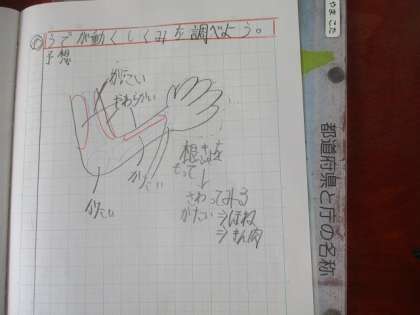 うでが動くしくみを調べよう。
予想
かたい
やわらかい
かたい
かたい
根きょを
もって
↓
さわってみる
かたい→ほね
→きん肉
都道府県と庁の名称